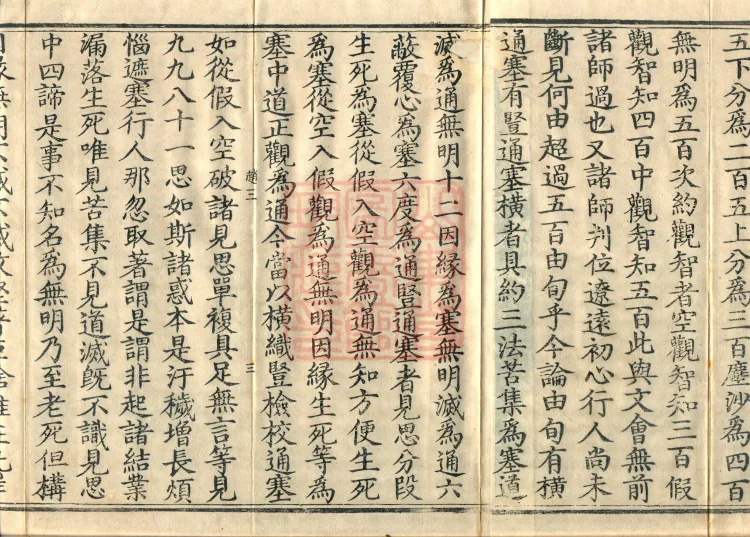 五下分為二百五上分為三百塵沙為四百
無明為五百次約觀智者空觀智知三百假
觀智知四百中觀智知五百此與文會無前
諸師過也又諸師判位遼遠初心行人尚未
斷見何由超過五百由旬乎今論由旬有橫
通塞有豎通塞橫者具約三法苦集為塞道
滅為通無明十二因緣為塞無明滅為通六
蔽覆心為塞六度為通豎通塞者見思分段
生死為塞從假入空觀為通無知方便生死
為塞從空入假觀為通無明因緣生死等為
塞中道正觀為通今當以橫織豎檢校通塞
趙三 三
如從假入空破諸見思單複具足無言等見
九九八十一思如斯諸惑本是汙穢增長煩
惱遮塞行人那忽取著謂是謂非起諸結業
漏落生死唯見苦集不見道滅旣不識見思
中四諦是事不知名為無明乃至老死但構